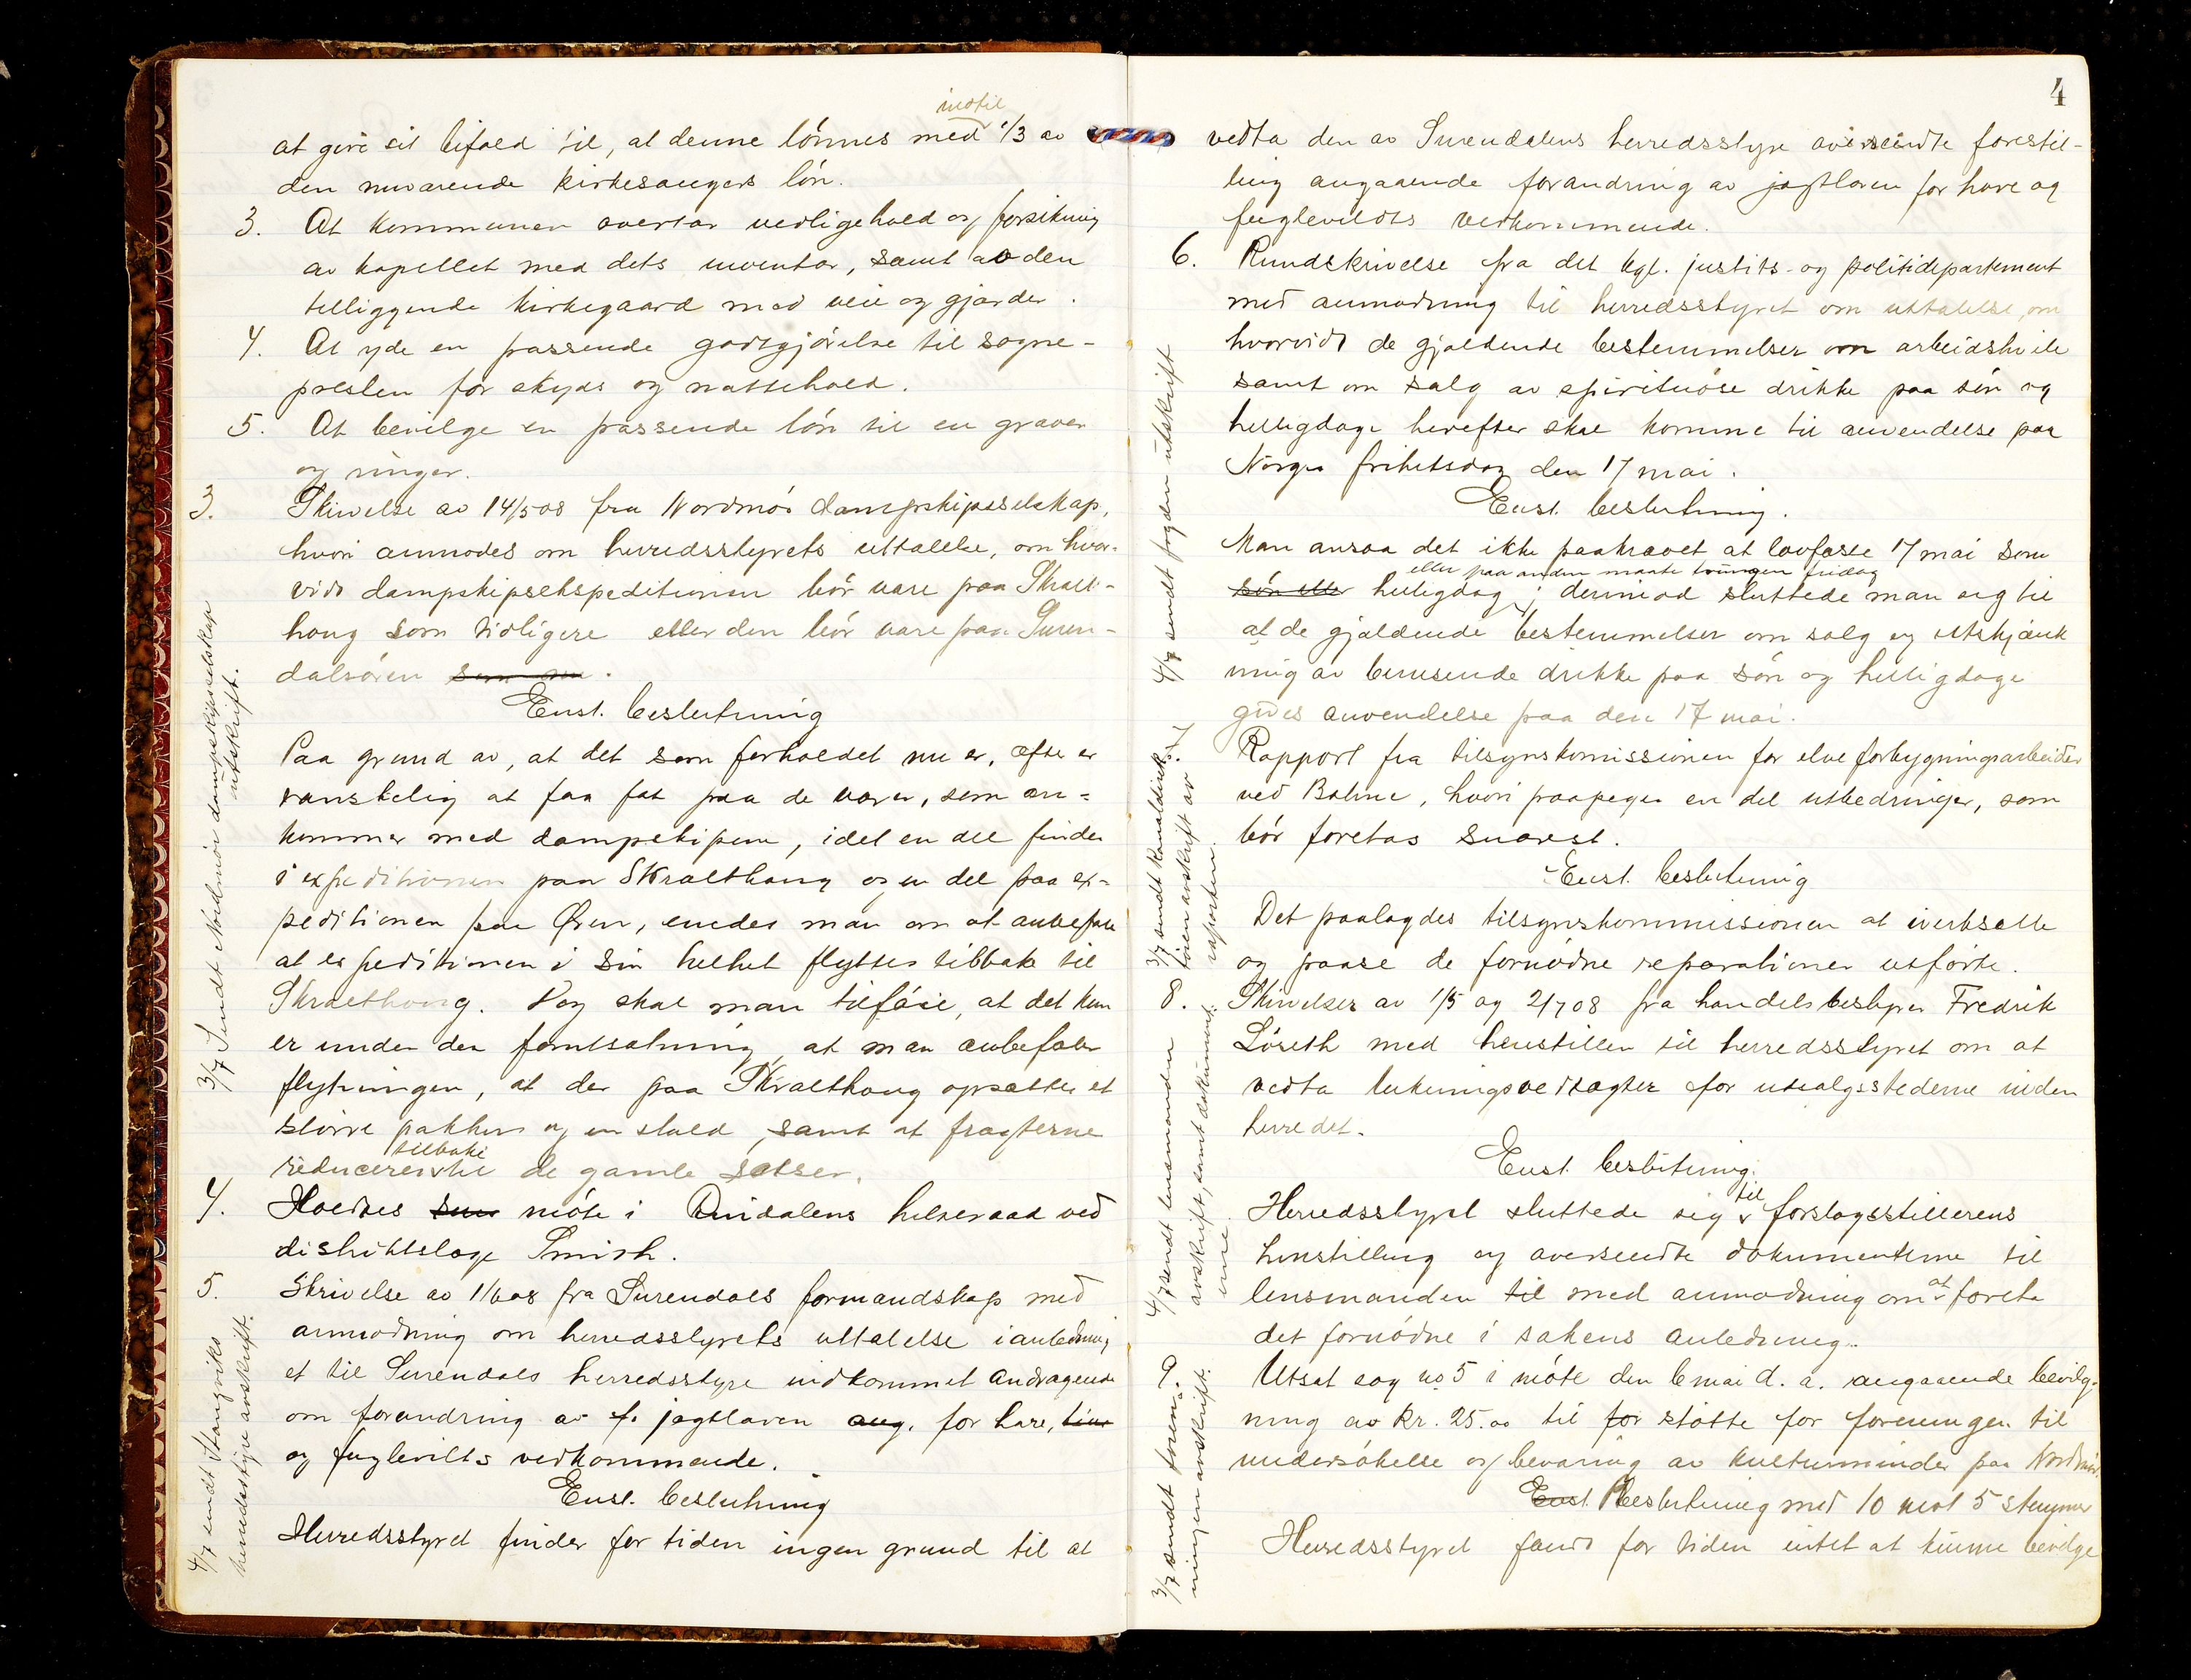 indtil
at give sit bifald til, at denne lönnes med 1/3 av
den nuværende kirkesangers lön.
3. At kommunen overtar vedligehold og forsikring
av kapellet med dets inventar, samt av den
tilliggende kirkegaard med veie og gjærder.
4. At yde en passende godtgjörelse til sogne-
presten for skyds og nattehold.
5. At bevilge en passende lön til en graver
og ringer.
3. Skrivelse av 14/5 08 fra Nordmör dampskipsselskap,
hvori anmodes om herredsstyrets uttalelse, om hvor-
vidt dampskipsekspeditionen bör være paa Skralt-
haug som tidligere eller den bör være paa Suren-
dalsören som nu.
Enst. beslutning
Paa grund av, at det som forholdet nu er, ofte er
vanskelig at faa fat paa de varer, som an-
kommer med dampskipene, idet en del findes
i expeditionen paa Skralthaug og en del paa ex-
peditionen paa Øren, enedes man om at anbefale
at expeditionen i sin helhet flyttes tilbake til
Skralthaug. Dog skal man tilföie, at det kun
er under den forutsætning, at man anbefaler
flytningen, at der paa Skralthaug opsættes et
större pakhus og en stald, samt at fragterne
tilbake
reduceres til de gamle satser.
4. Holdtes som möte i Rindalens helseraad ved
distriktslæge Smith.
5. Skrivelse av 1/6 08 fra Surendals formandskap med
anmodning om herredsstyrets uttalelse i anledning
et til Surendals herredsstyre indkommet andragende
om forandring av f. jagtloven ang. for hare,
og fuglevilts vedkommende.
Enst. beslutning
Herredsstyret finder for tiden ingen grund til at
3/7 Sendt Nordmör dampskipsselskap
utskrift.
4/7 sendt Stangviks
herredsstyre avskrift.
4
vedta den av Surendalens herredsstyre aviserte forestil-
ling angaaende forandring av jagtloven for hare og
fuglevildts vedkommende.
6. Rundskrivelse fra det kgl. justits- og politidepartement
med anmodning til herredsstyret om uttalelse om
hvorvidt de gjældende bestemmelser om arbeidshvile
samt om salg av spirituöse drikke paa sön og
helligdage herefter skal komme til anvendelse paa
Norges frihetsdag den 17 mai.
Enst. beslutning.
Man ansaa det ikke paakrævet at lovfæste 17 mai som
eller paa anden maate tvungen fridag
sön eller helligdag; derimod sluttede man sig til
at de gjældende bestemmelser om salg og utskjænk
ning av berusende drikke paa sön og helligdage
gives anvendelse paa den 17 mai.
7. Rapport fra tilsynskomissionen for elveforbygningsarbeider
ved Bolme, hvori paapeges en del utbedringer, som
bör foretas snarest.
Enst. beslutning
Det paalagdes tilsynskommissionen at iverksætte
og paase de fornödne reparationer utförte.
8. Skrivelser av 1/5 og 2/7 08 fra handelsbestyrer Fredrik
Löseth med henstillen til herredsstyret om at
vedta lukningsvedtægter for utsalgsstederne inden
herredet.
Enst. beslutning.
til
Herredsstyret sluttede sig forslagsstillerens
henstilling og oversendte dokumenterne til
lensmanden til med anmodning om at foreta
det fornödne i sakens anledning.
9. Utsat sag no 5 i möte den 6 mai d. a. angaaende bevilg-
ning av kr. 25.00 til for stötte for foreningen til
undersökelse og bevaring av kulturminder paa Nordmör.
Enst. Beslutning med 10 mot 5 stemmer
Herredsstyret fandt for tiden intet at kunne bevilge
4/7 sendt fogden utskrift
3/7 sendt kanaldirek-
tören avskrift av
raporten.
4/7 sendt lensmanden
avskrift, samt dokument-
erne.
3/7 sendt foren-
ningen avskrift.